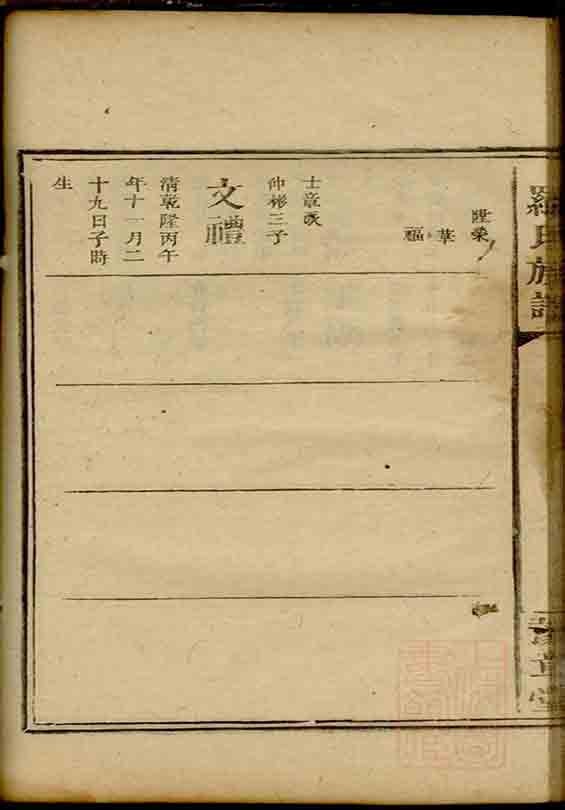 羅氏族譜
陞榮
華
福
士章派
仲彬三子
文禮
清乾隆丙午
年十一月二
十九日子時
生